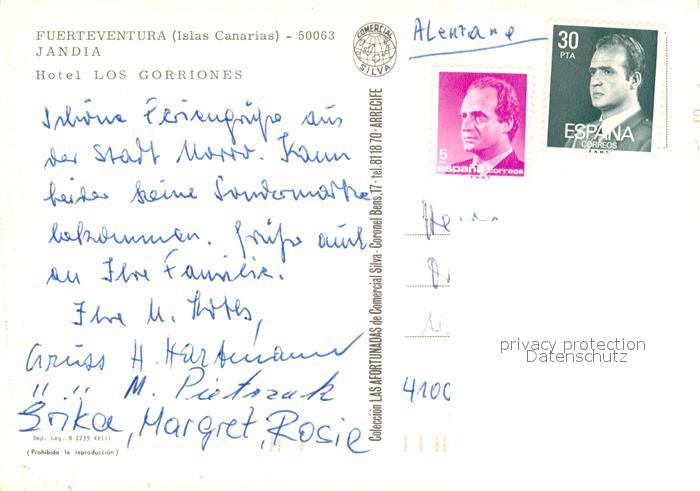 FUERTEVENTURA (Islas Canarias) - 50063
JANDIA
Hotel LOS GORRIONES
Schöne Feriengrüße aus
der Stadt Morro. Kann
leider keine Sondermarke
bekommen. Grüße auch
an Ihre Familie.
Ihre M.
Gruss H. Hartmann
" " M. Pietrzak
Erika, Margret, Rosie
Dep. Leg. B 2239 XXIII
(Prohibida la reproducción)
COMERCIAL SILVA
Colección LAS AFORTUNADAS de Comercial Silva - Coronel Bens, 17 - tel. 81 18 70 - ARRECIFE
Alemania
5 PTA
españa correos
F.N.M.T.
30 PTA
ESPAÑA
CORREOS
F.N.M.T.
privacy protection
Datenschutz
4100